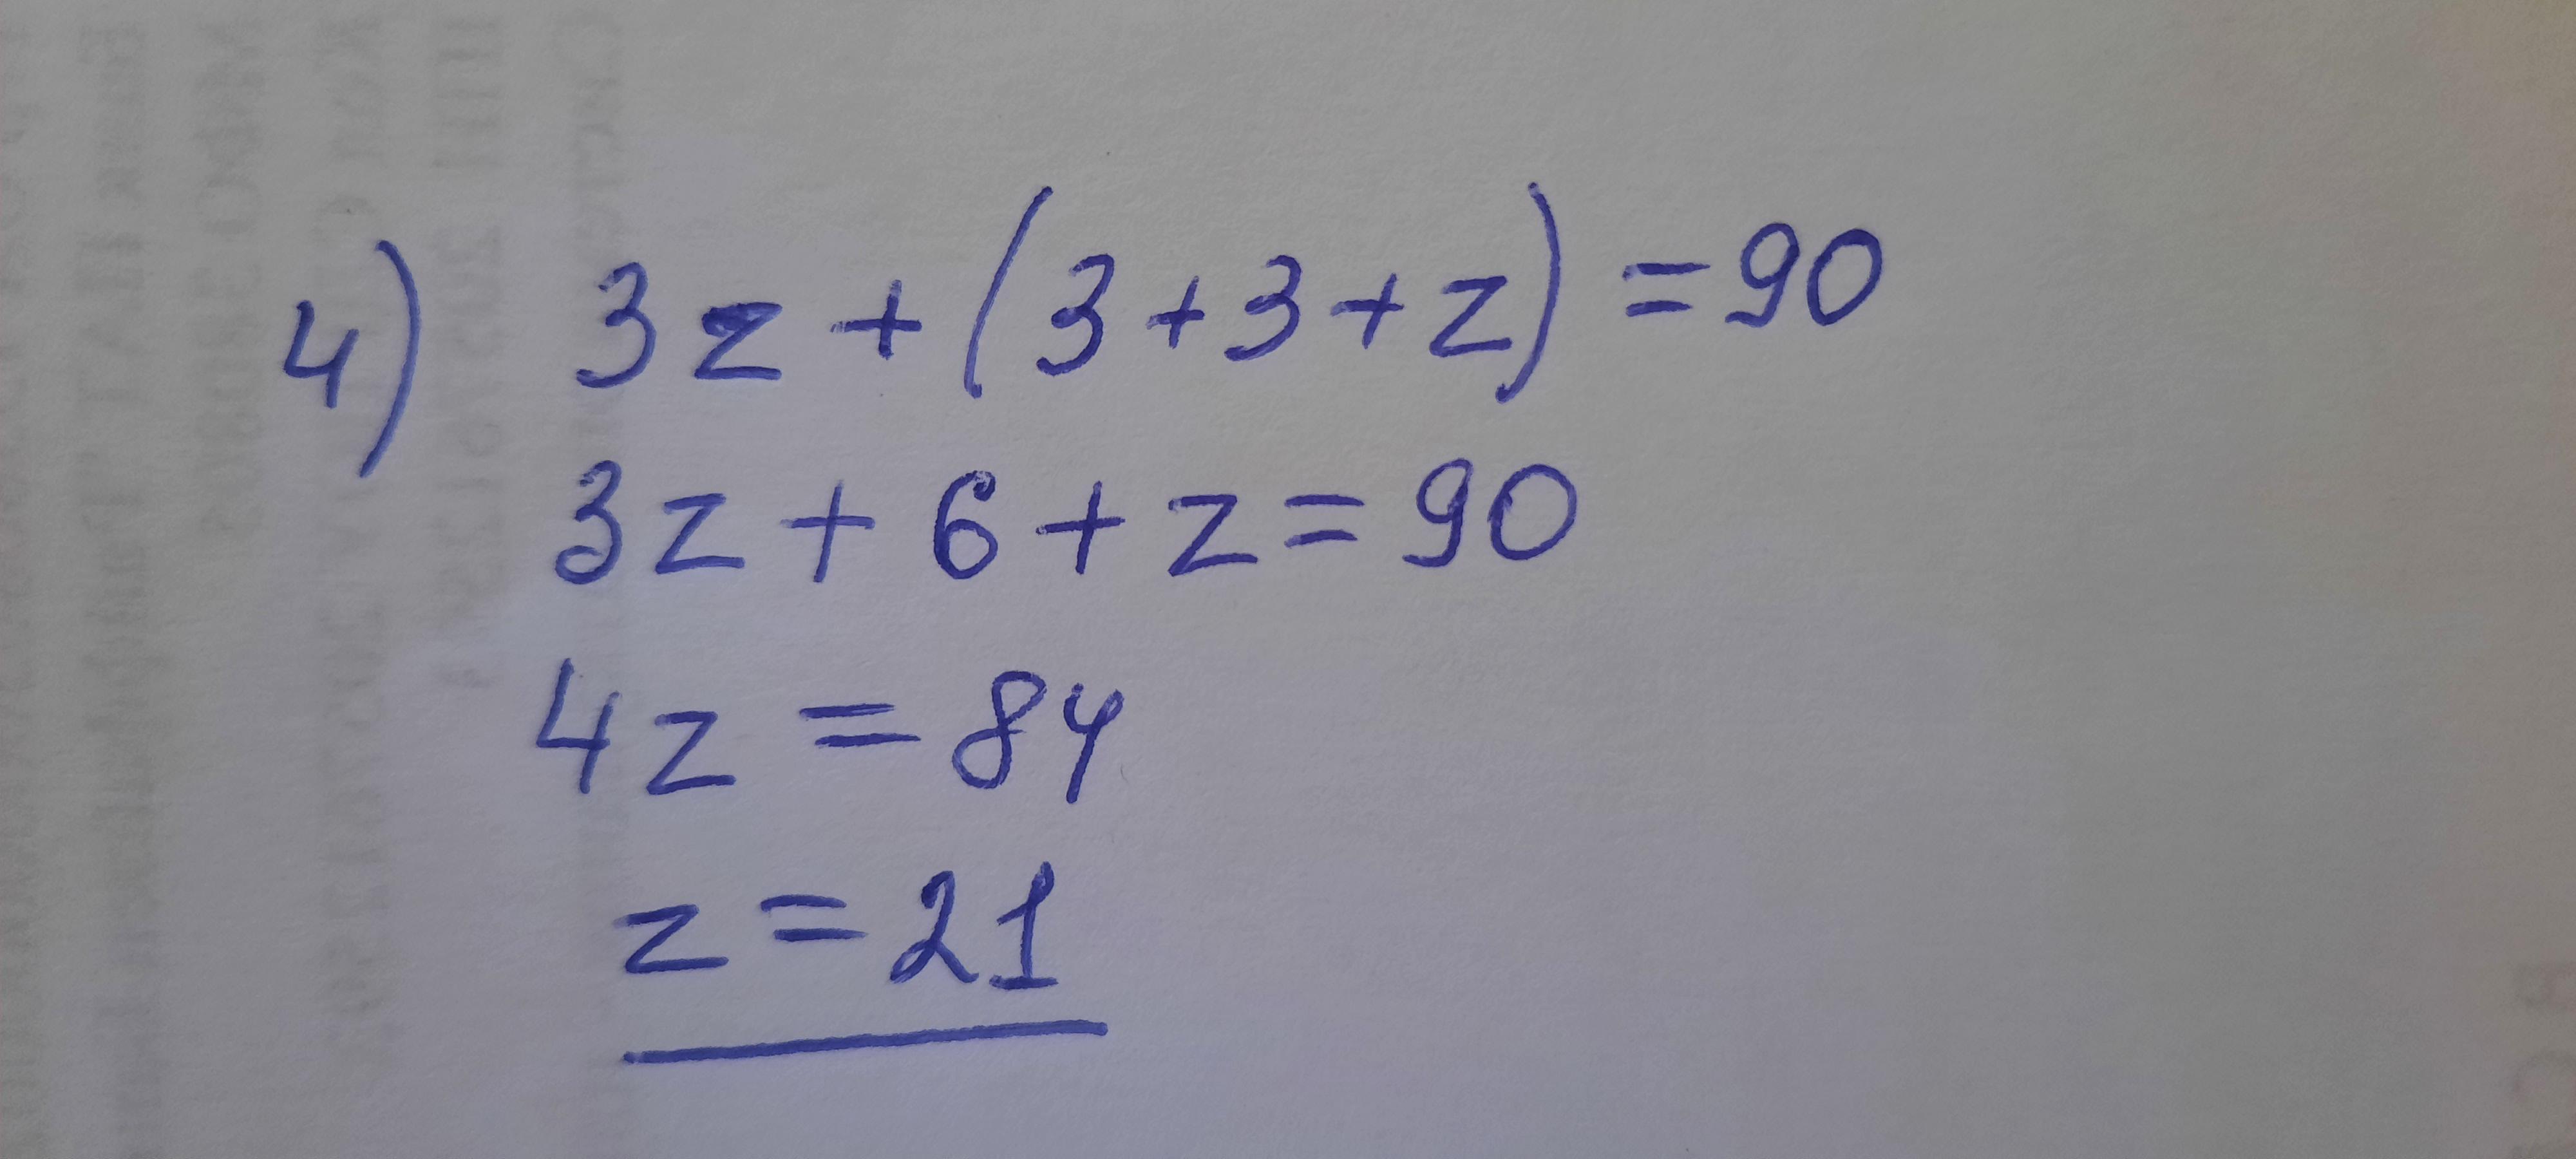 4) 3z + (3+3+z) = 90
3z + 6 + z = 90
4z = 84
z = 21